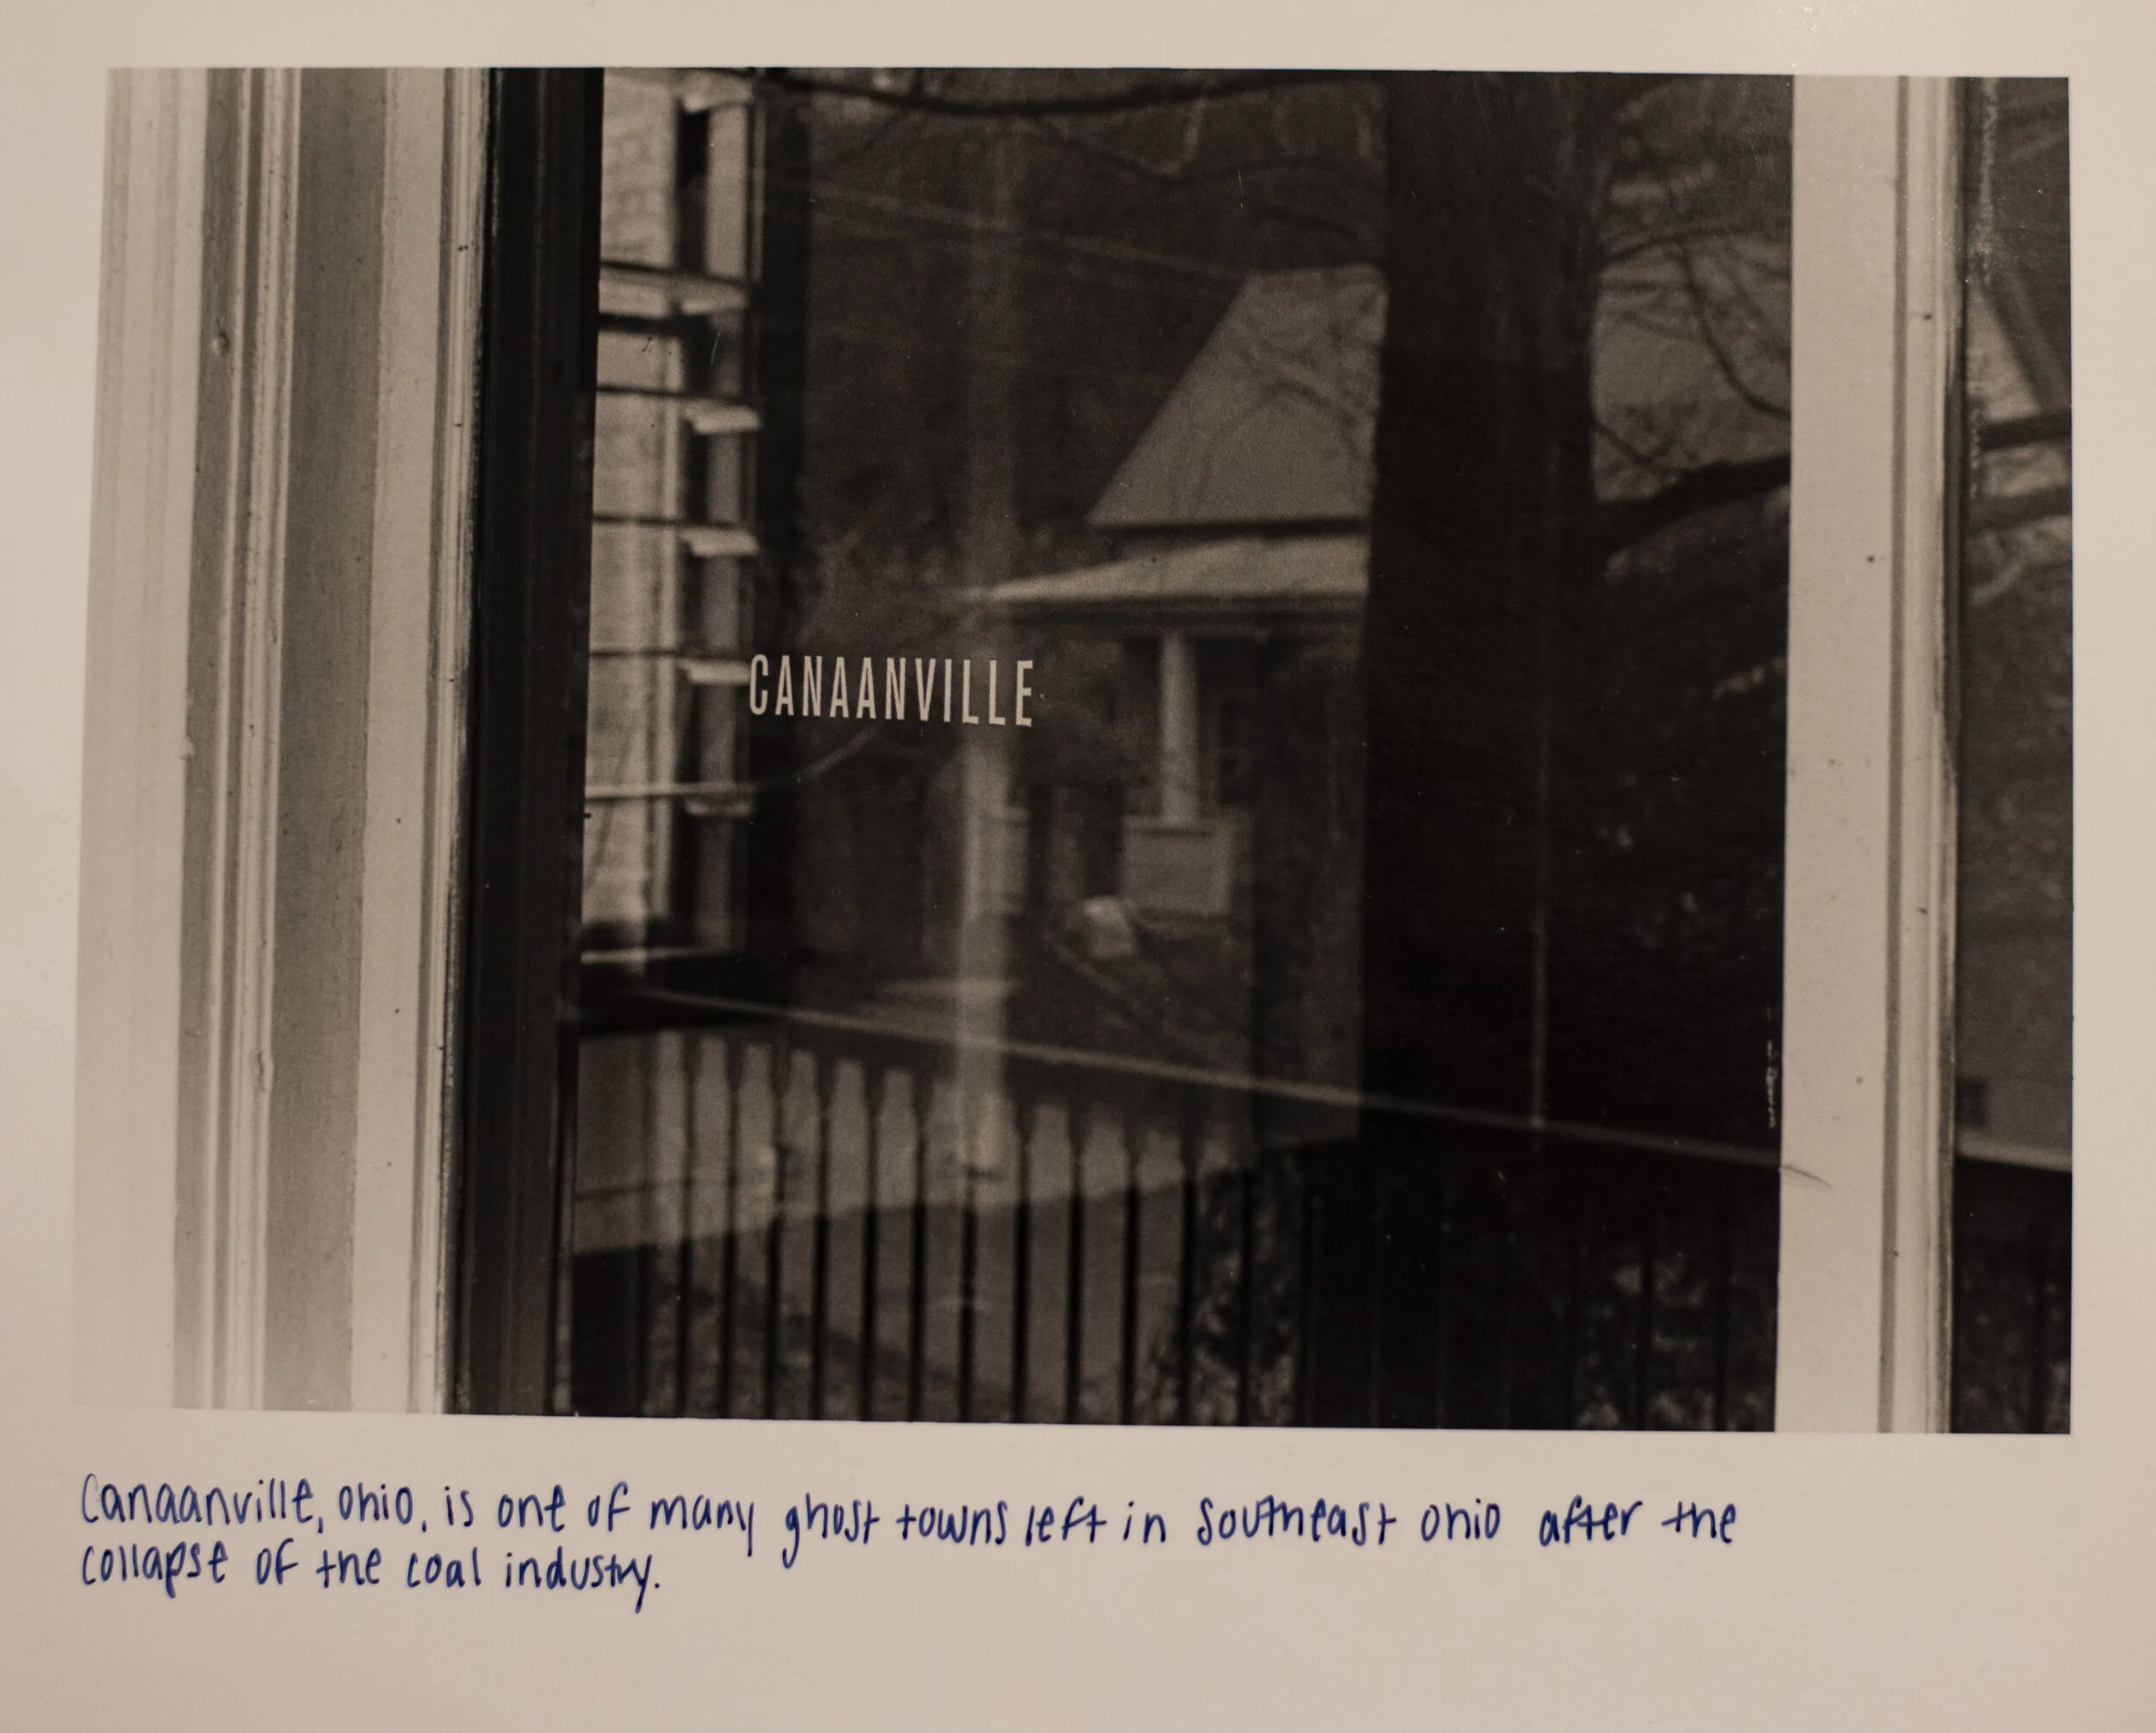 CANAANVILLE
Canaanville, Ohio, is one of many ghost towns left in Southeast Ohio after the
collapse of the coal industry.